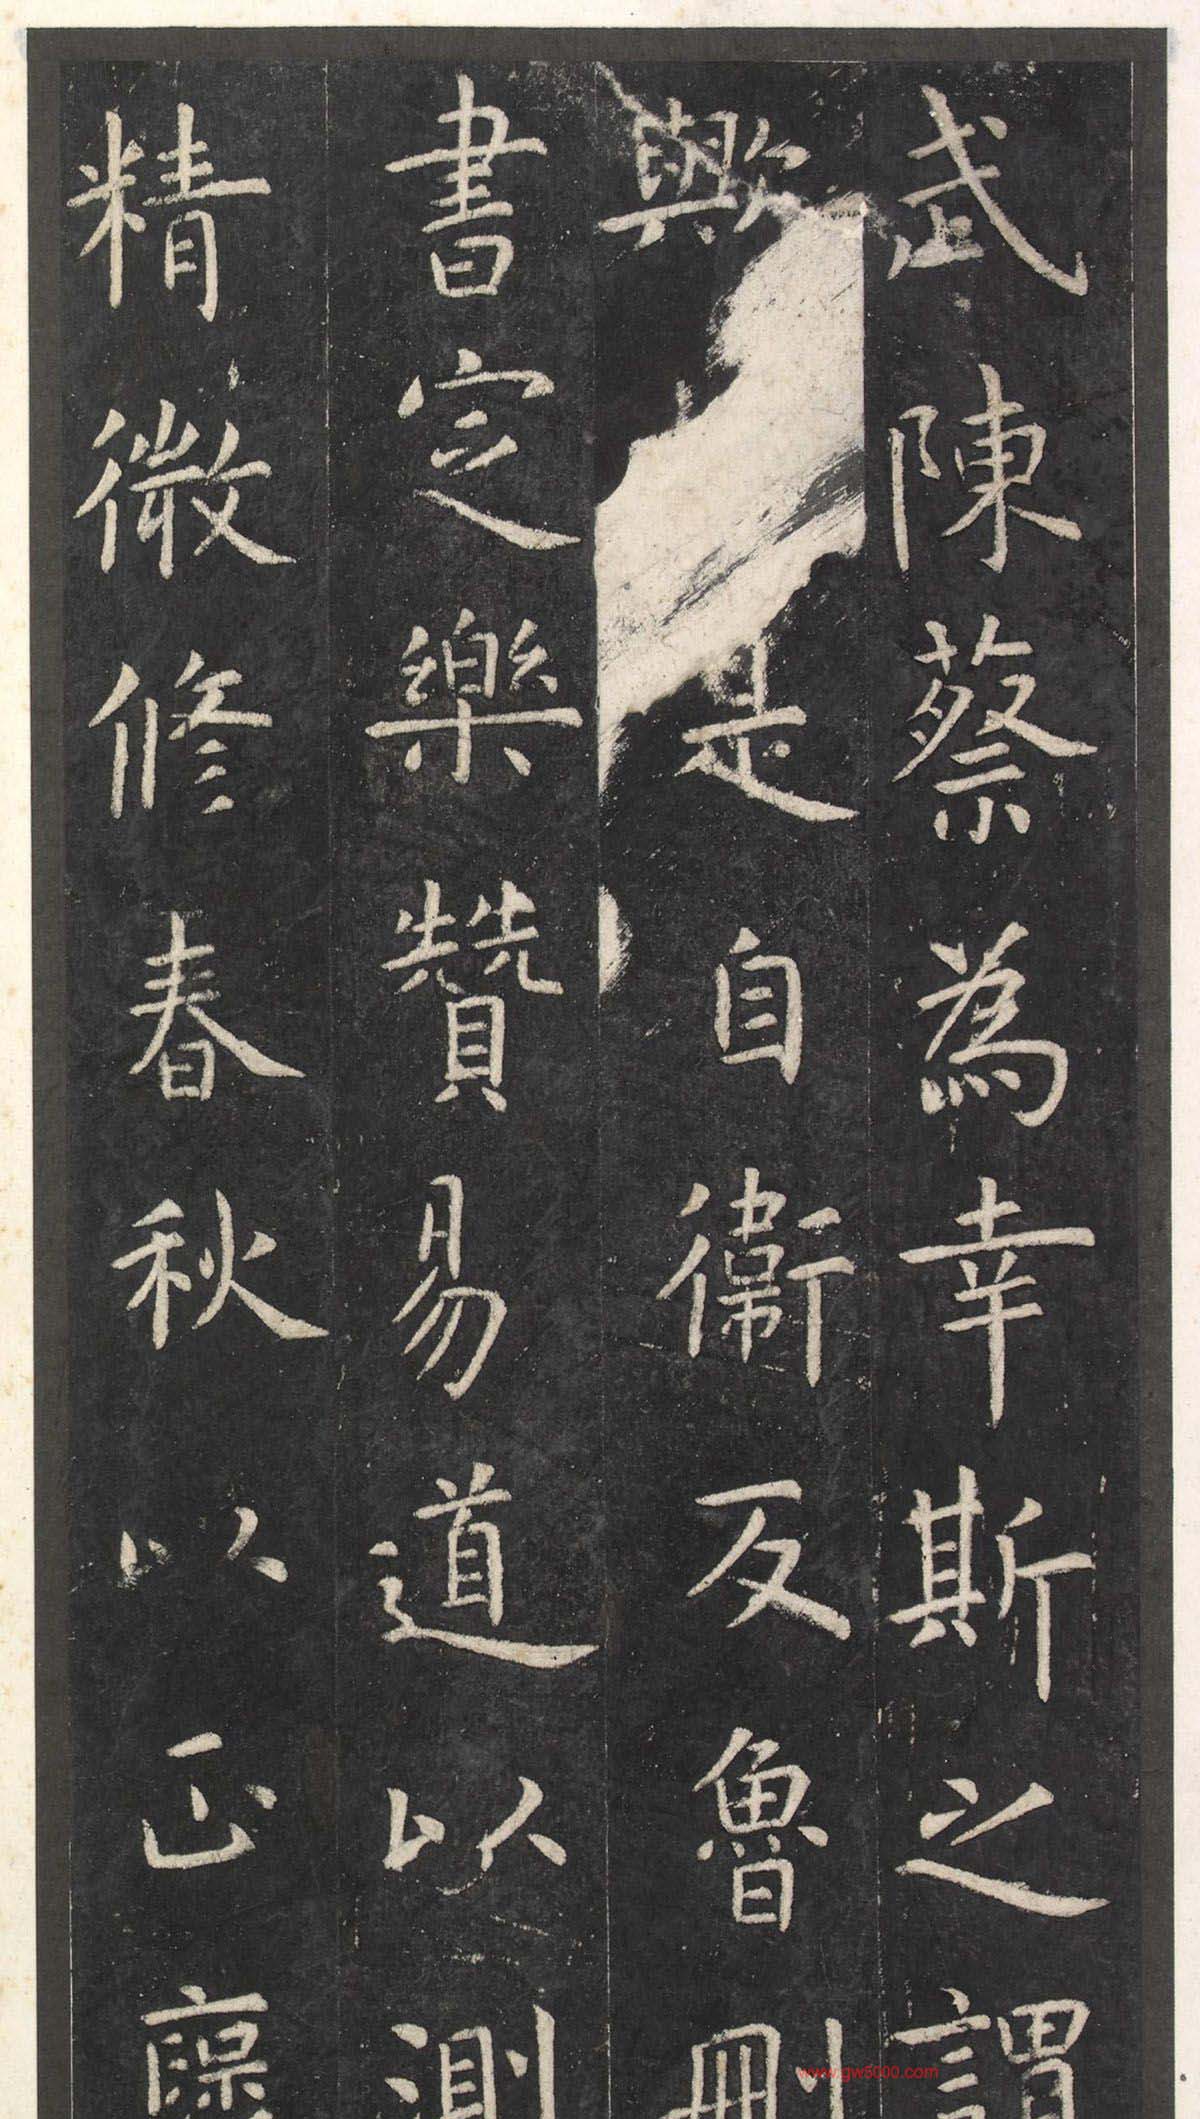 武陳蔡為幸斯之謂
歟是自衛反魯刪
書定樂贊易道以測
精微修春秋以正褒
www.gw5000.com